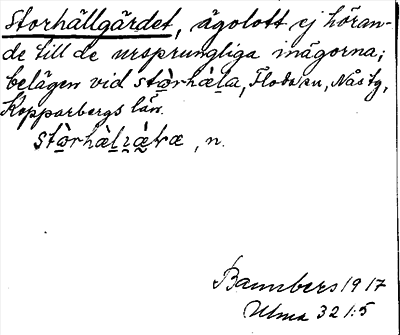 Storhällgärdet, ägolott ej höran-
de till de ursprungliga inägorna;
belägen vid stò̱rhàḻa, Floda sn, Nåsby,
Kopparbergs län.
stò̱rhàḻẕæ̀ṯræ, n.
Bannbers 1917
Ulma 321:5